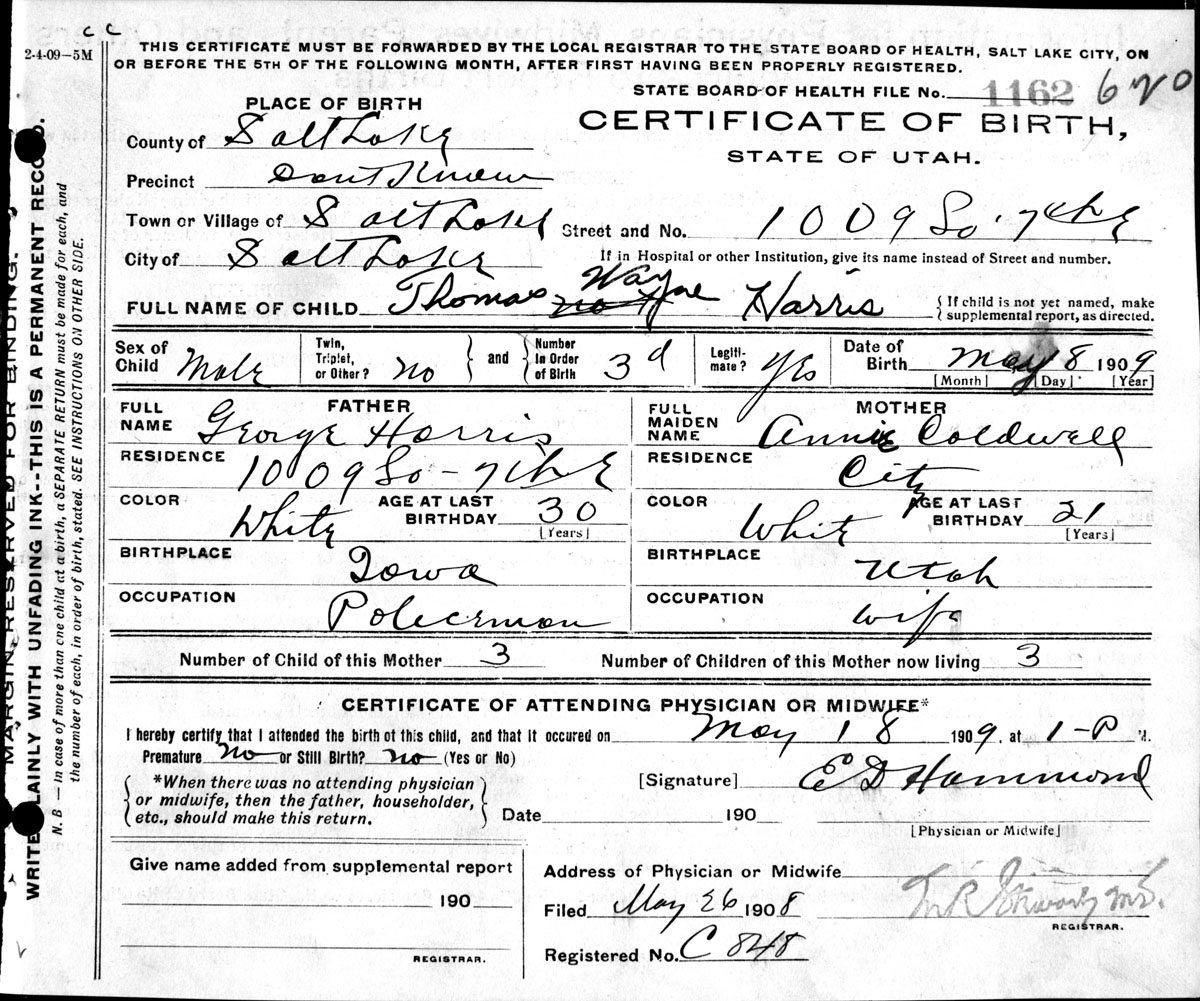 c c
2-4-09-5M
THIS CERTIFICATE MUST BE FORWARDED BY THE LOCAL REGISTRAR TO THE STATE BOARD OF HEALTH, SALT LAKE CITY, ON
OR BEFORE THE 5TH OF THE FOLLOWING MONTH, AFTER FIRST HAVING BEEN PROPERLY REGISTERED.
STATE BOARD OF HEALTH FILE No. 1162 620
PLACE OF BIRTH
CERTIFICATE OF BIRTH,
STATE OF UTAH.
County of Salt Lake
Precinct Dont Know
Town or Village of Salt Lake
Street and No. 1009 So 7th E
City of Salt Lake
If in Hospital or other Institution, give its name instead of Street and number.
FULL NAME OF CHILD Thomas Wayne Harris
{If child is not yet named, make supplemental report, as directed.
Sex of Child Male
Twin, Triplet, or Other? no
and
Number in Order of Birth 3d
Legiti-mate? Yes
Date of Birth May 8 1909
[Month] [Day] [Year]
FATHER
FULL NAME George Harris
RESIDENCE 1009 So - 7th E
COLOR White
AGE AT LAST BIRTHDAY 30
[Years]
BIRTHPLACE Iowa
OCCUPATION Policeman
MOTHER
FULL MAIDEN NAME Annie Coldwell
RESIDENCE City
COLOR White
AGE AT LAST BIRTHDAY 21
[Years]
BIRTHPLACE Utah
OCCUPATION Wife
Number of Child of this Mother 3
Number of Children of this Mother now living 3
CERTIFICATE OF ATTENDING PHYSICIAN OR MIDWIFE*
I hereby certify that I attended the birth of this child, and that it occured on May 18 1909, at 1-P M.
Premature no or Still Birth? no (Yes or No)
*When there was no attending physician
or midwife, then the father, householder,
etc., should make this return.
[Signature] E D Hammond
Date 190
[Physician or Midwife]
Give name added from supplemental report
190
REGISTRAR.
Address of Physician or Midwife
Filed May 26 1908
REGISTRAR.
Registered No. C 848
MARGIN RESERVED FOR BINDING.
WRITE PLAINLY WITH UNFADING INK--THIS IS A PERMANENT RECORD.
N. B — In case of more than one child at a birth, a SEPARATE RETURN must be made for each, and
the number of each, in order of birth, stated. SEE INSTRUCTIONS ON OTHER SIDE.